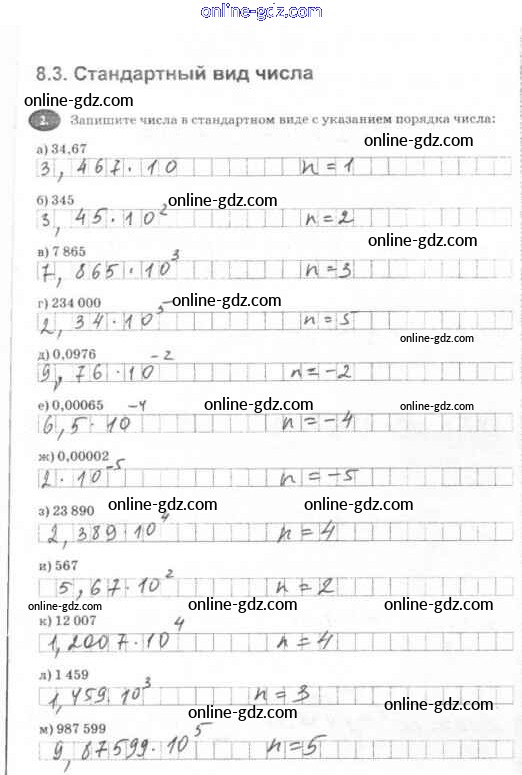 online-gdz.com
8.3. Стандартный вид числа
online-gdz.com
2. Запишите числа в стандартном виде с указанием порядка числа:
online-gdz.com
а) 34,67
3,467·10 n=1
online-gdz.com
б) 345
3,45·10² n=2
online-gdz.com
в) 7 865
7,865·10³ n=3
online-gdz.com
г) 234 000
2,34·10⁵ n=5
online-gdz.com
д) 0,0976
9,76·10⁻² n=-2
online-gdz.com
online-gdz.com
е) 0,00065
6,5·10⁻⁴ n=-4
ж) 0,00002
2·10⁻⁵ n=-5
online-gdz.com
online-gdz.com
з) 23 890
2,389·10⁴ n=4
и) 567
5,67·10² n=2
online-gdz.com
online-gdz.com
online-gdz.com
к) 12 007
1,2007·10⁴ n=4
л) 1 459
1,459·10³ n=3
online-gdz.com
м) 987 599
9,87599·10⁵ n=5